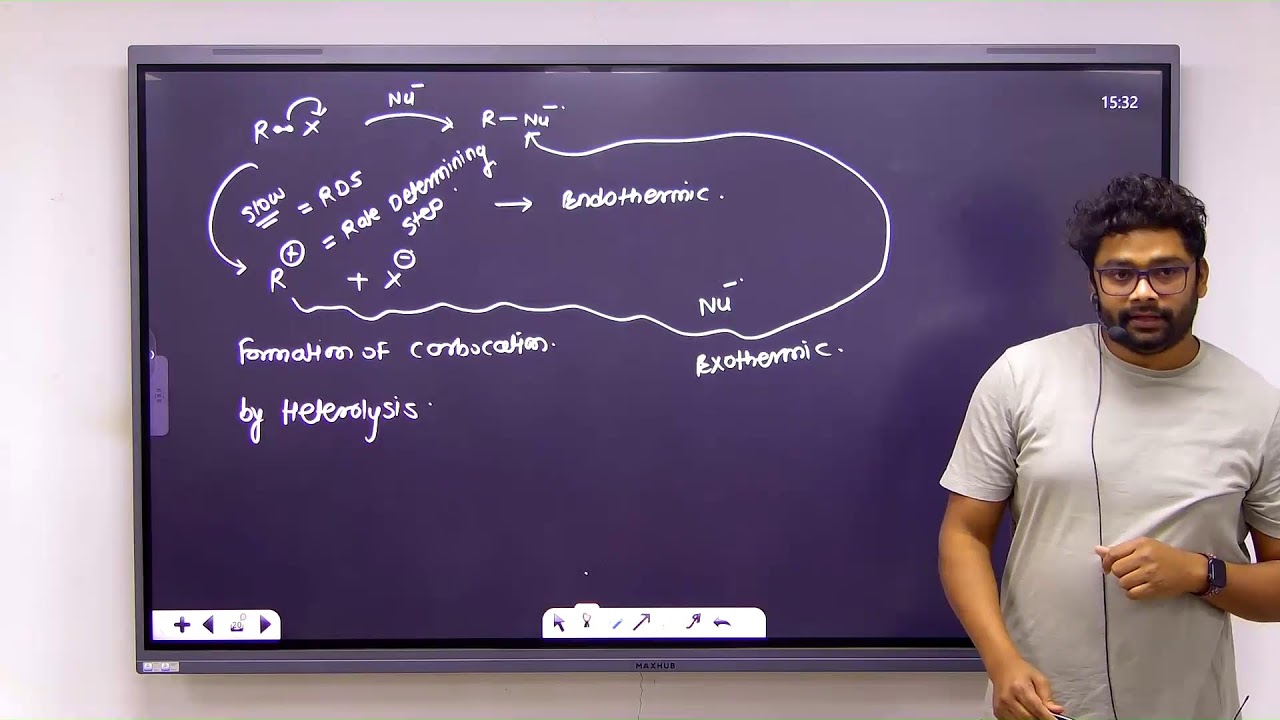 R — X Nu⁻ R — Nu⁻
15:32
Slow = RDS
= Rate Determining
Step.
→ Endothermic.
R⊕ + X⊖
Nu⁻
Formation of carbocation.
Exothermic.
by Heterolysis.
20
MAXHUB